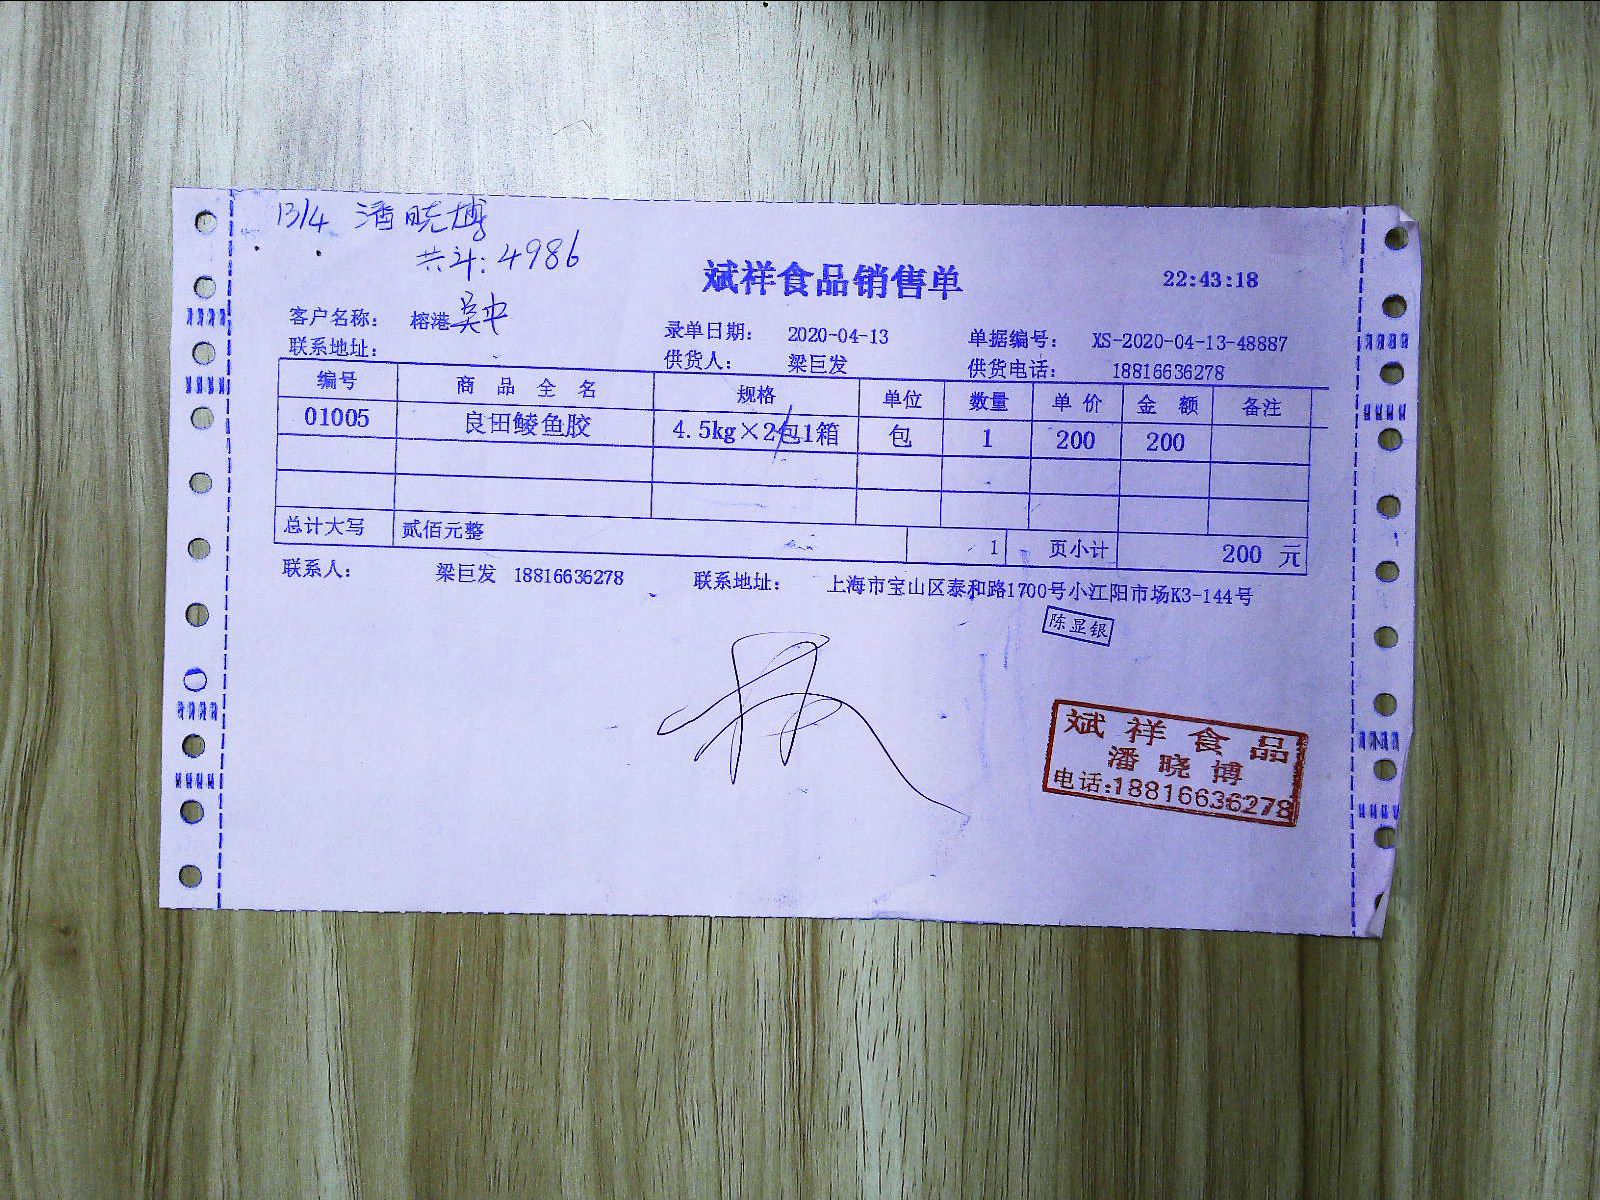 13/4 潘晓博
共计: 4986
斌祥食品销售单 22:43:18
客户名称: 榕港吴中 录单日期: 2020-04-13 单据编号: XS-2020-04-13-48887
联系地址: 供货人: 梁巨发 供货电话: 18816636278
编号 商品全名 规格 单位 数量 单价 金额 备注
01005 良田鲮鱼胶 4.5kg×2包1箱 包 1 200 200
总计大写 贰佰元整 1 页小计 200 元
联系人: 梁巨发 18816636278 联系地址: 上海市宝山区泰和路1700号小江阳市场K3-144号
陈显银
斌祥食品
潘晓博
电话:18816636278